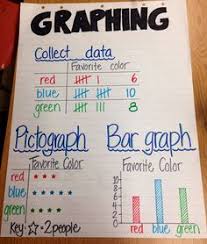 GRAPHING
Collect data
Favorite color
red 6
blue 10
green 8
Pictograph
Favorite Color
red
blue
green
Key: ☆=2 people
Bar graph
Favorite Color
10
5
0